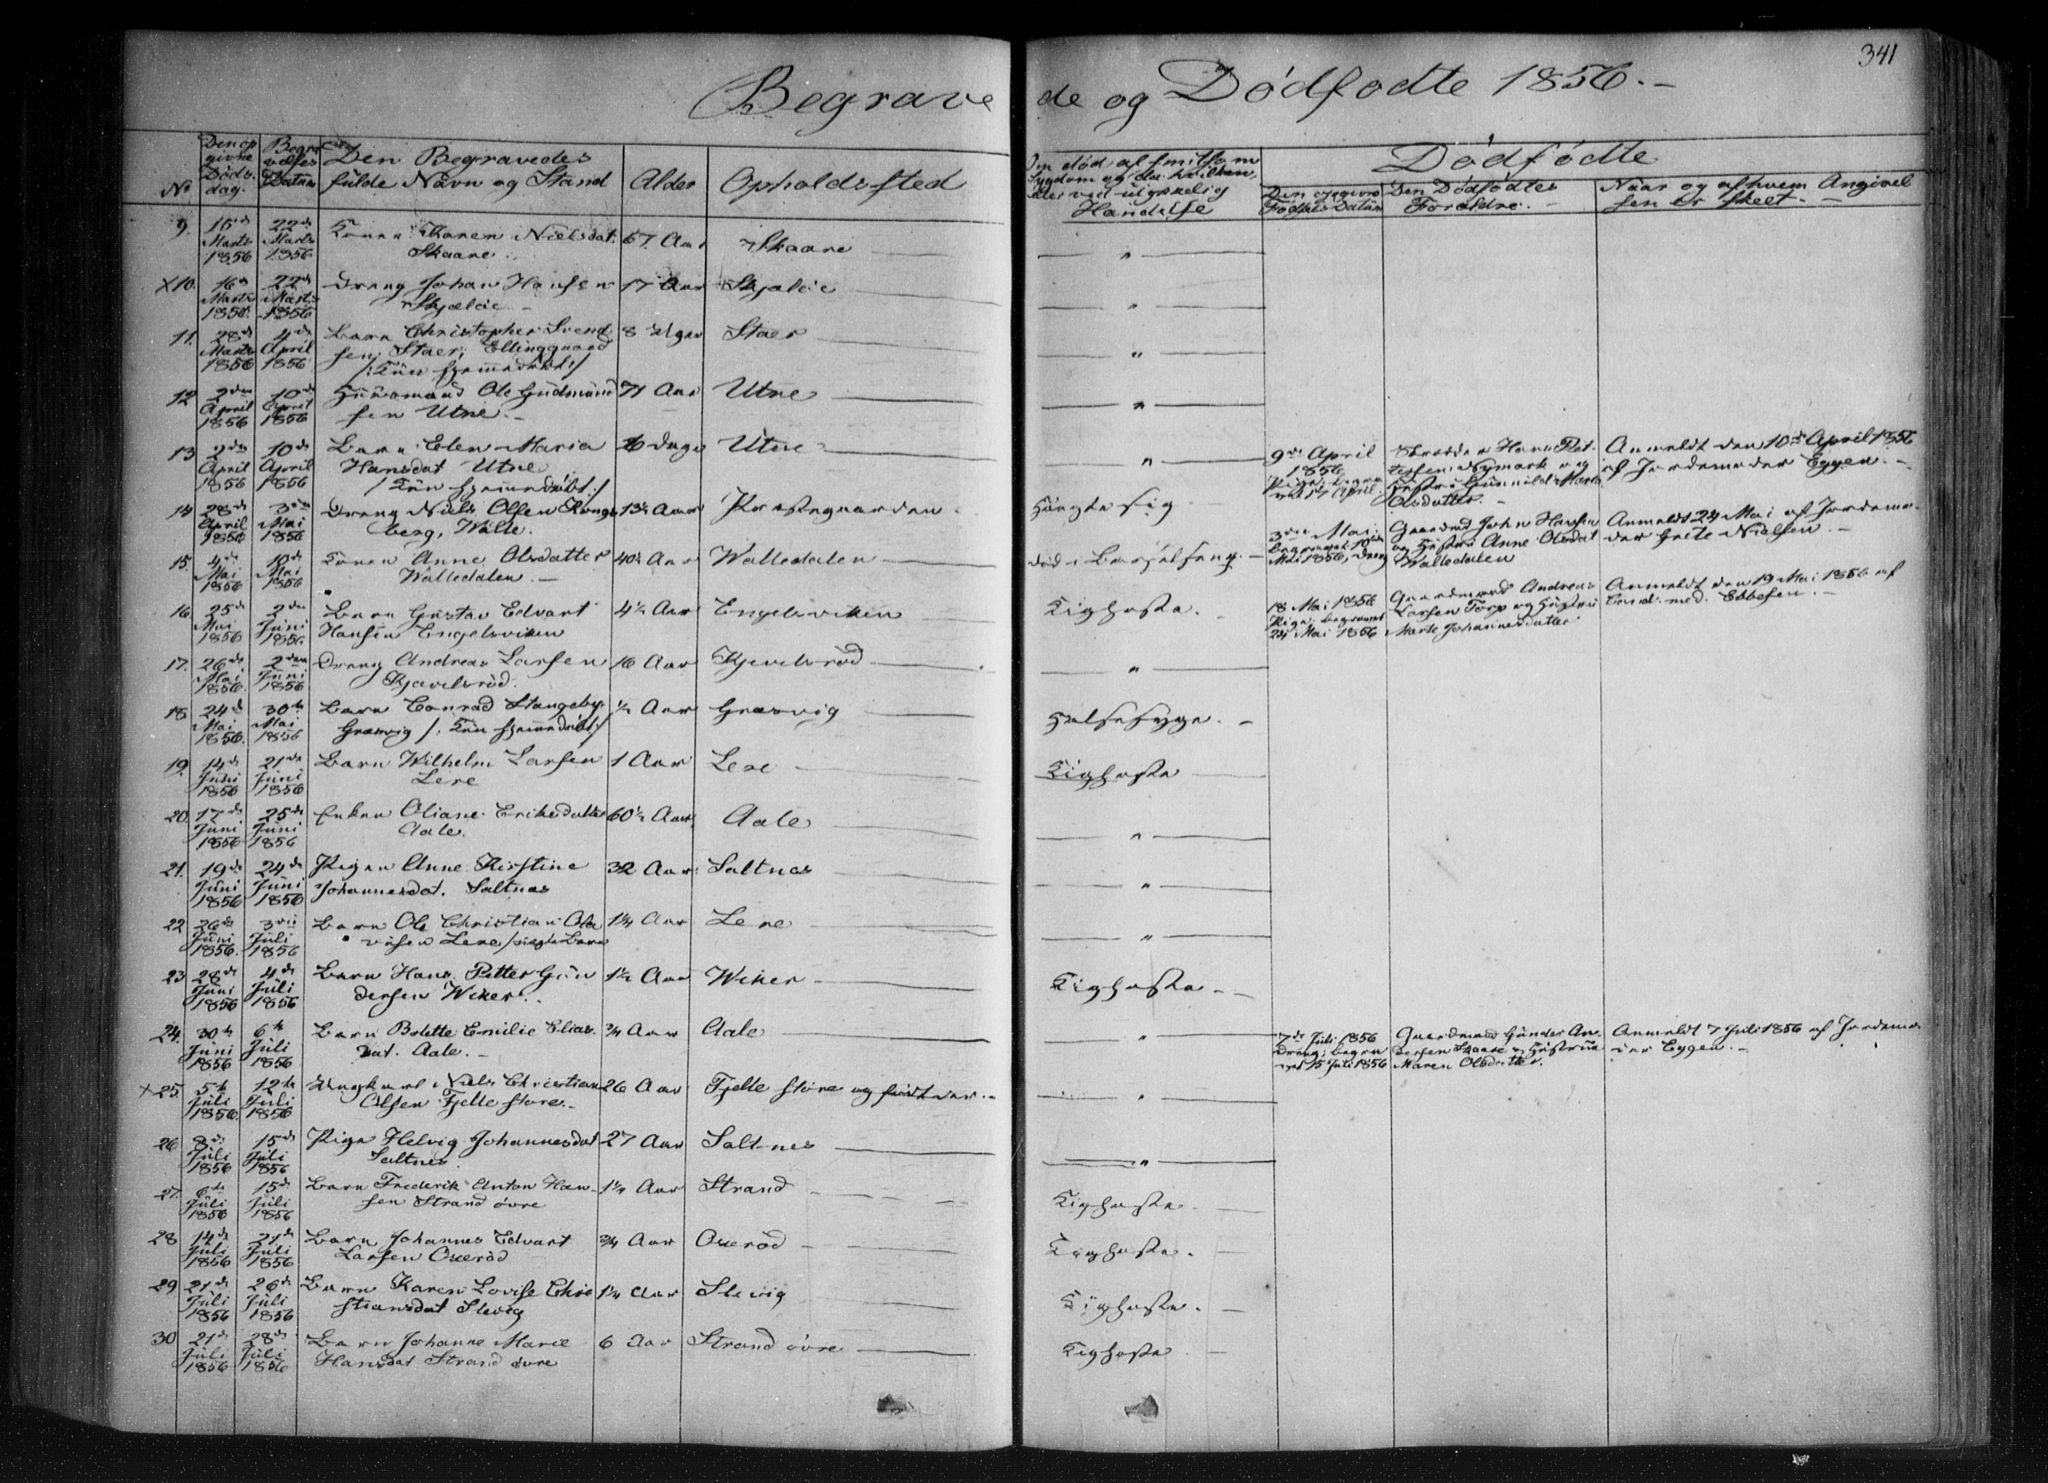 341
Begravede og Dødfødte 1856.
Den opgivne Dødsdag.
Begravelses Datum
No
Den Begravedes
fulde Navn og Stand
Alder
Opholdssted
Handelse
Dødfødte
Den Dødfødtes
Forældre.
Naar og af hvem Angivelsen er skeet.
9. 15de Marts 1856 22de Marts 1856 Konen Karen Nielsdat. 67 Aar Skaare "
Skaare
X10. 16de Marts 1856 22de Marts 1856 Dreng Johan Hansen 17 Aar Skjælöe "
Skjælöe
11. 28de Marts 1856 4de April 1856 Barn Christopher Svend 8 Uger Staer "
sen, Staer, Ellinggaard
/: Kun hjemmedöbt :/
12 2den April 1856 10de April 1856 Huusmand Ole Gudmund 71 Aar Utne "
sen Utne.
13 2den April 1856 10de April 1856 Barn Elen Maria 6 Dage Utne "
Hansdat Utne
/ Kun hjemmedöbt :/
9de April 1856 Pige; begravet 17 April
Skrædder Hans Pettersen Nymark og Hustru Gunnild Marie Olsdatter.
Anmeldt den 10de April 1856
af Jordemoder Eggen.
14 28de April 1856 3die Mai 1856 Dreng Niels Olsen Kongs 13½ Aar Præstegaarden Hængte sig
berg, Walle.
3die Mai begravet 10de Mai 1856, Dreng
Gaardmd John Hansen
og Hustru Anne Olsdat
Walledalen
Anmeldt 24 Mai af Jordemoder Grete Nielsen.
15. 4de Mai 1856 10de Mai 1856 Konen Anne Olsdatter 40½ Aar Walledalen död i Barselseng.
Walledalen.
16. 25de Mai 1856 2den Juni 1856 Barn Gustav Edvart 4½ Aar Engelsviken Kighoste.
Hansen Engelsviken
18 Mai 1856 Pige; begravet 24 Mai 1856
Gaardmand Andreas
Larsen Torp og Hustru
Marte Johannesdatter
Anmeldt den 19 Mai 1856 af
Cand. med. Ebbesen.
17. 26de Mai 1856 2den Juni 1856 Dreng Andreas Larsen 16 Aar Kjevelsröd "
Kjævelsröd.
18 24de Mai 1856 30te Mai 1856 Barn Conrad Stangeby ½ Aar Græsvig Halsesyge.
Græsvig /: Kun hjemmedöbt :/
19. 14de Juni 1856 21de Juni 1856 Barn Wilhelm Larsen 1 Aar Lere Kighoste
Lere
20. 17de Juni 1856 25de Juni 1856 Enken Oliane Eriksdatter 60½ Aar Aale "
Aale.
21. 19de Juni 1856 24de Juni 1856 Pigen Anne Kirstine 32 Aar Saltnæs "
Johannesdat. Saltnæs
22 26de Juni 1856. 3die Juli 1856 Barn Ole Christian Ola 1¼ Aar Lere "
visen Lere /uægte Barn
23 28de Juni 1856 4de Juli 1856 Barn Hans Petter Gun 1½ Aar Wiker Kighoste.
dersen Wiker.
24. 30te Juni 1856 6te Juli 1856 Barn Bolette Emilie Elias ¾ Aar Aale "
dat. Aale.
7de Juli 1856 Dreng; begravet 15 Juli 1856
Gaardmand Gunder Andersen Skaare og Hustrue
Maren Olsdatter.
Anmeldt 7 Juli 1856 af Jordemoder Eggen.
X25. 5te Juli 1856. 12te Juli 1856 Ungkarl Niels Christian 26 Aar Fjelle store og "
Olsen Fjelle store.
26 8de Juli 1856 15de Juli 1856 Pige Helvig Johannesdat 27 Aar Saltnes "
Saltnes.
27. 6te Juli 1856 15de Juli 1856 Barn Frederik Anton Han 1¼ Aar Strand Kighoste.
sen Strand övre
28 14de Juli 1856 21de Juli 1856 Barn Johannes Edvart ¾ Aar Oxeröd Kighoste.
Larsen Oxeröd
29 21de Juli 1856 26de Juli 1856 Barn Karen Lovise Chri 1¼ Aar Slevig Kighoste.
stiansdat Slevig
30 21de Juli 1856 28de Juli 1856 Barn Johanne Marie 6 Aar Strand övre Kighoste
Hansdat Strand övre